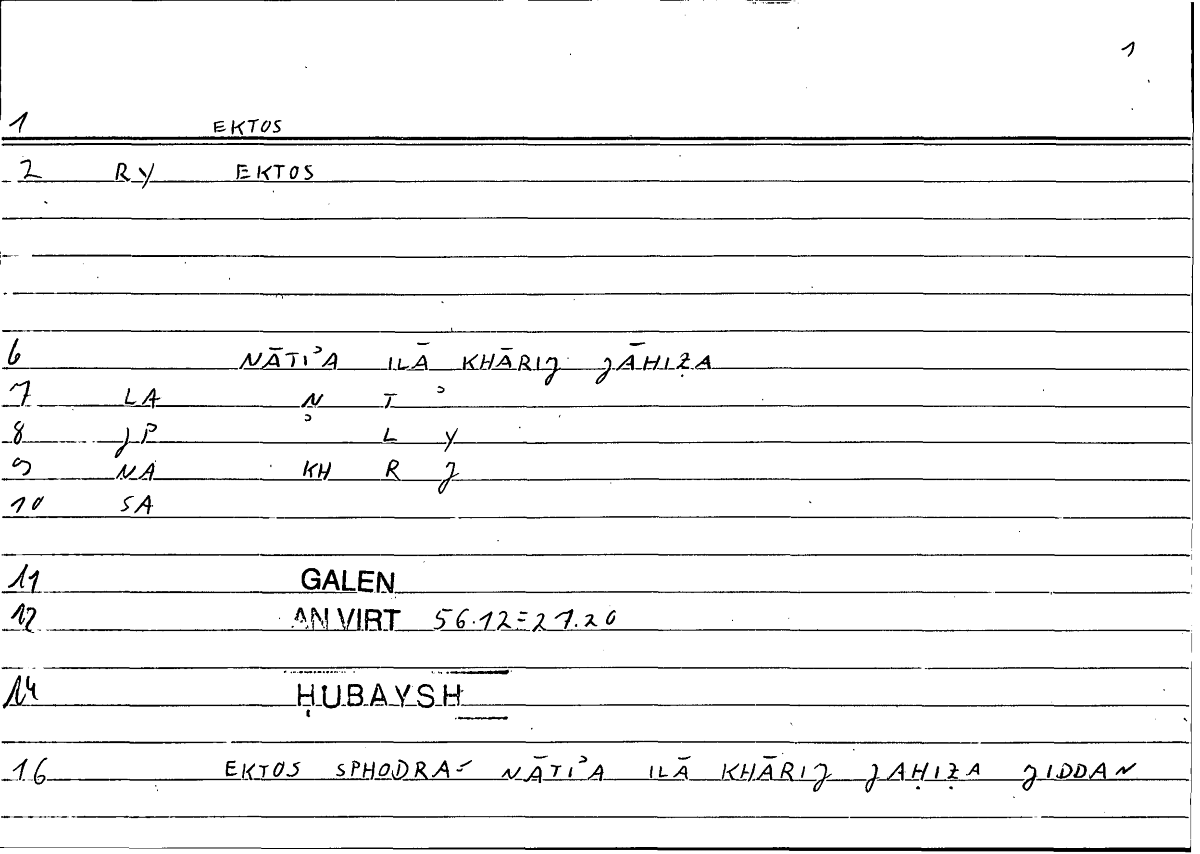 1
1 EKTOS
2 RY EKTOS
6 NĀTIʾA ILĀ KHĀRIJ JĀHIẒA
7 LA N T ʾ
8 JP ʾ L Y
9 NA KH R J
10 SA
11 GALEN
12 AN VIRT 56.12=27.20
14 ḤUBAYSH
16 EKTOS SPHODRA= NĀTIʾA ILĀ KHĀRIJ JAḤIẒA JIDDAN